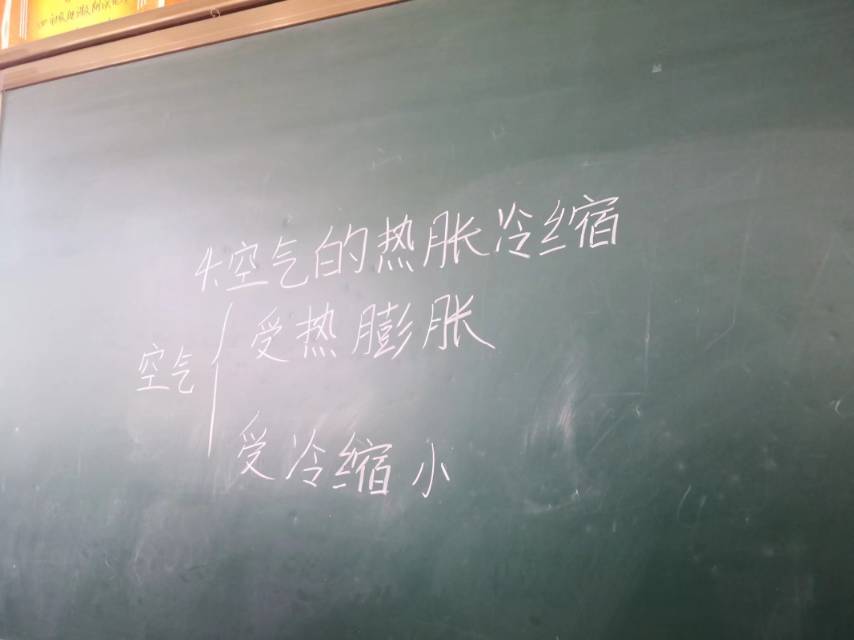 4.空气的热胀冷缩
受热膨胀
空气
受冷缩小